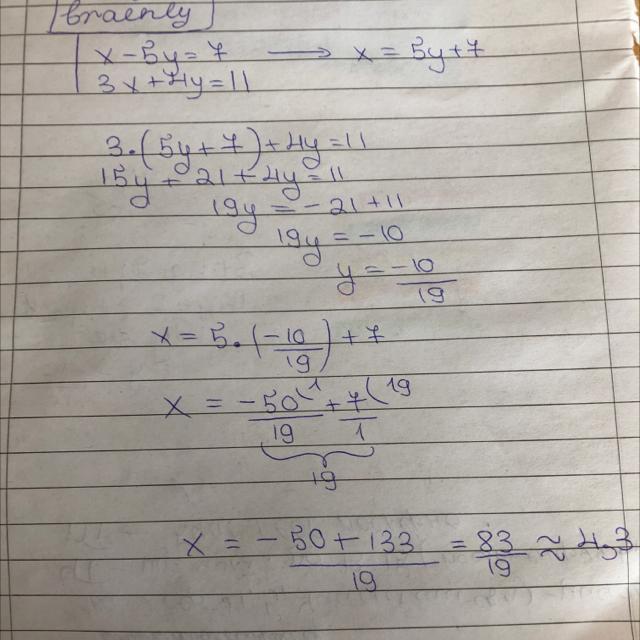 brainly
x-5y=7 → x=5y+7
3x+4y=11
3.(5y+7)+4y=11
15y+21+4y=11
19y=-21+11
19y=-10
y=-10/19
x=5.(-10/19)+7
x=-50/19 (1 +7/1 (19
19
x=-50+133/19=83/19≈4,3